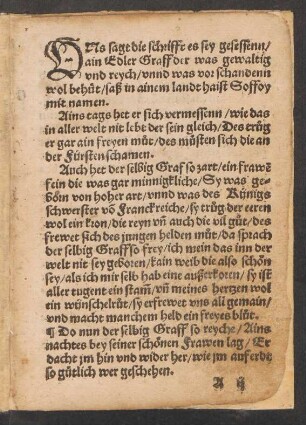 UNs sagt die schrifft es sey gesessenn/
ain Edler Graff der was gewaltig
vnd reych/vnnd was vor schandenn
wol behůt/saß in ainem landt haist Soffoy
mit namen.
Ains tags het er sich vermessenn/wie das
in aller welt nit lebt der sein gleich/Des trůg
er gar ain freyen můt/des můsten sich die an
der Fürsten schamen.
Auch het der selbig Graf so zart/ein frawē
fein die was gar minnigkliche/Sy was ge-
bŏrn von hoher art/vnnd was des Künigs
schwester vō Franckreiche/sy trůg der eren
wol ein kron/die reyn vñ auch die vil gůt/des
frewet sich des jungen helden můt/da sprach
der selbig Graff so frey/ich mein das inn der
welt nit sey geboren/kain weib die also schön
sey/als ich mir selb hab eine außerkoren/sy ist
aller tugent ein stam̄/vñ meines hertzen wol
ein wünschelrůt/sy erfrewet vns all gemain/
vnd macht manchem held ein freyes blůt.
¶ Do nun der selbig Graff so reyche/Ains
nachtes bey seiner schönen Frawen lag/Er
dacht jm hin vnd wider her/wie jm auf erdē
so gütlich wer geschehen.
A ij